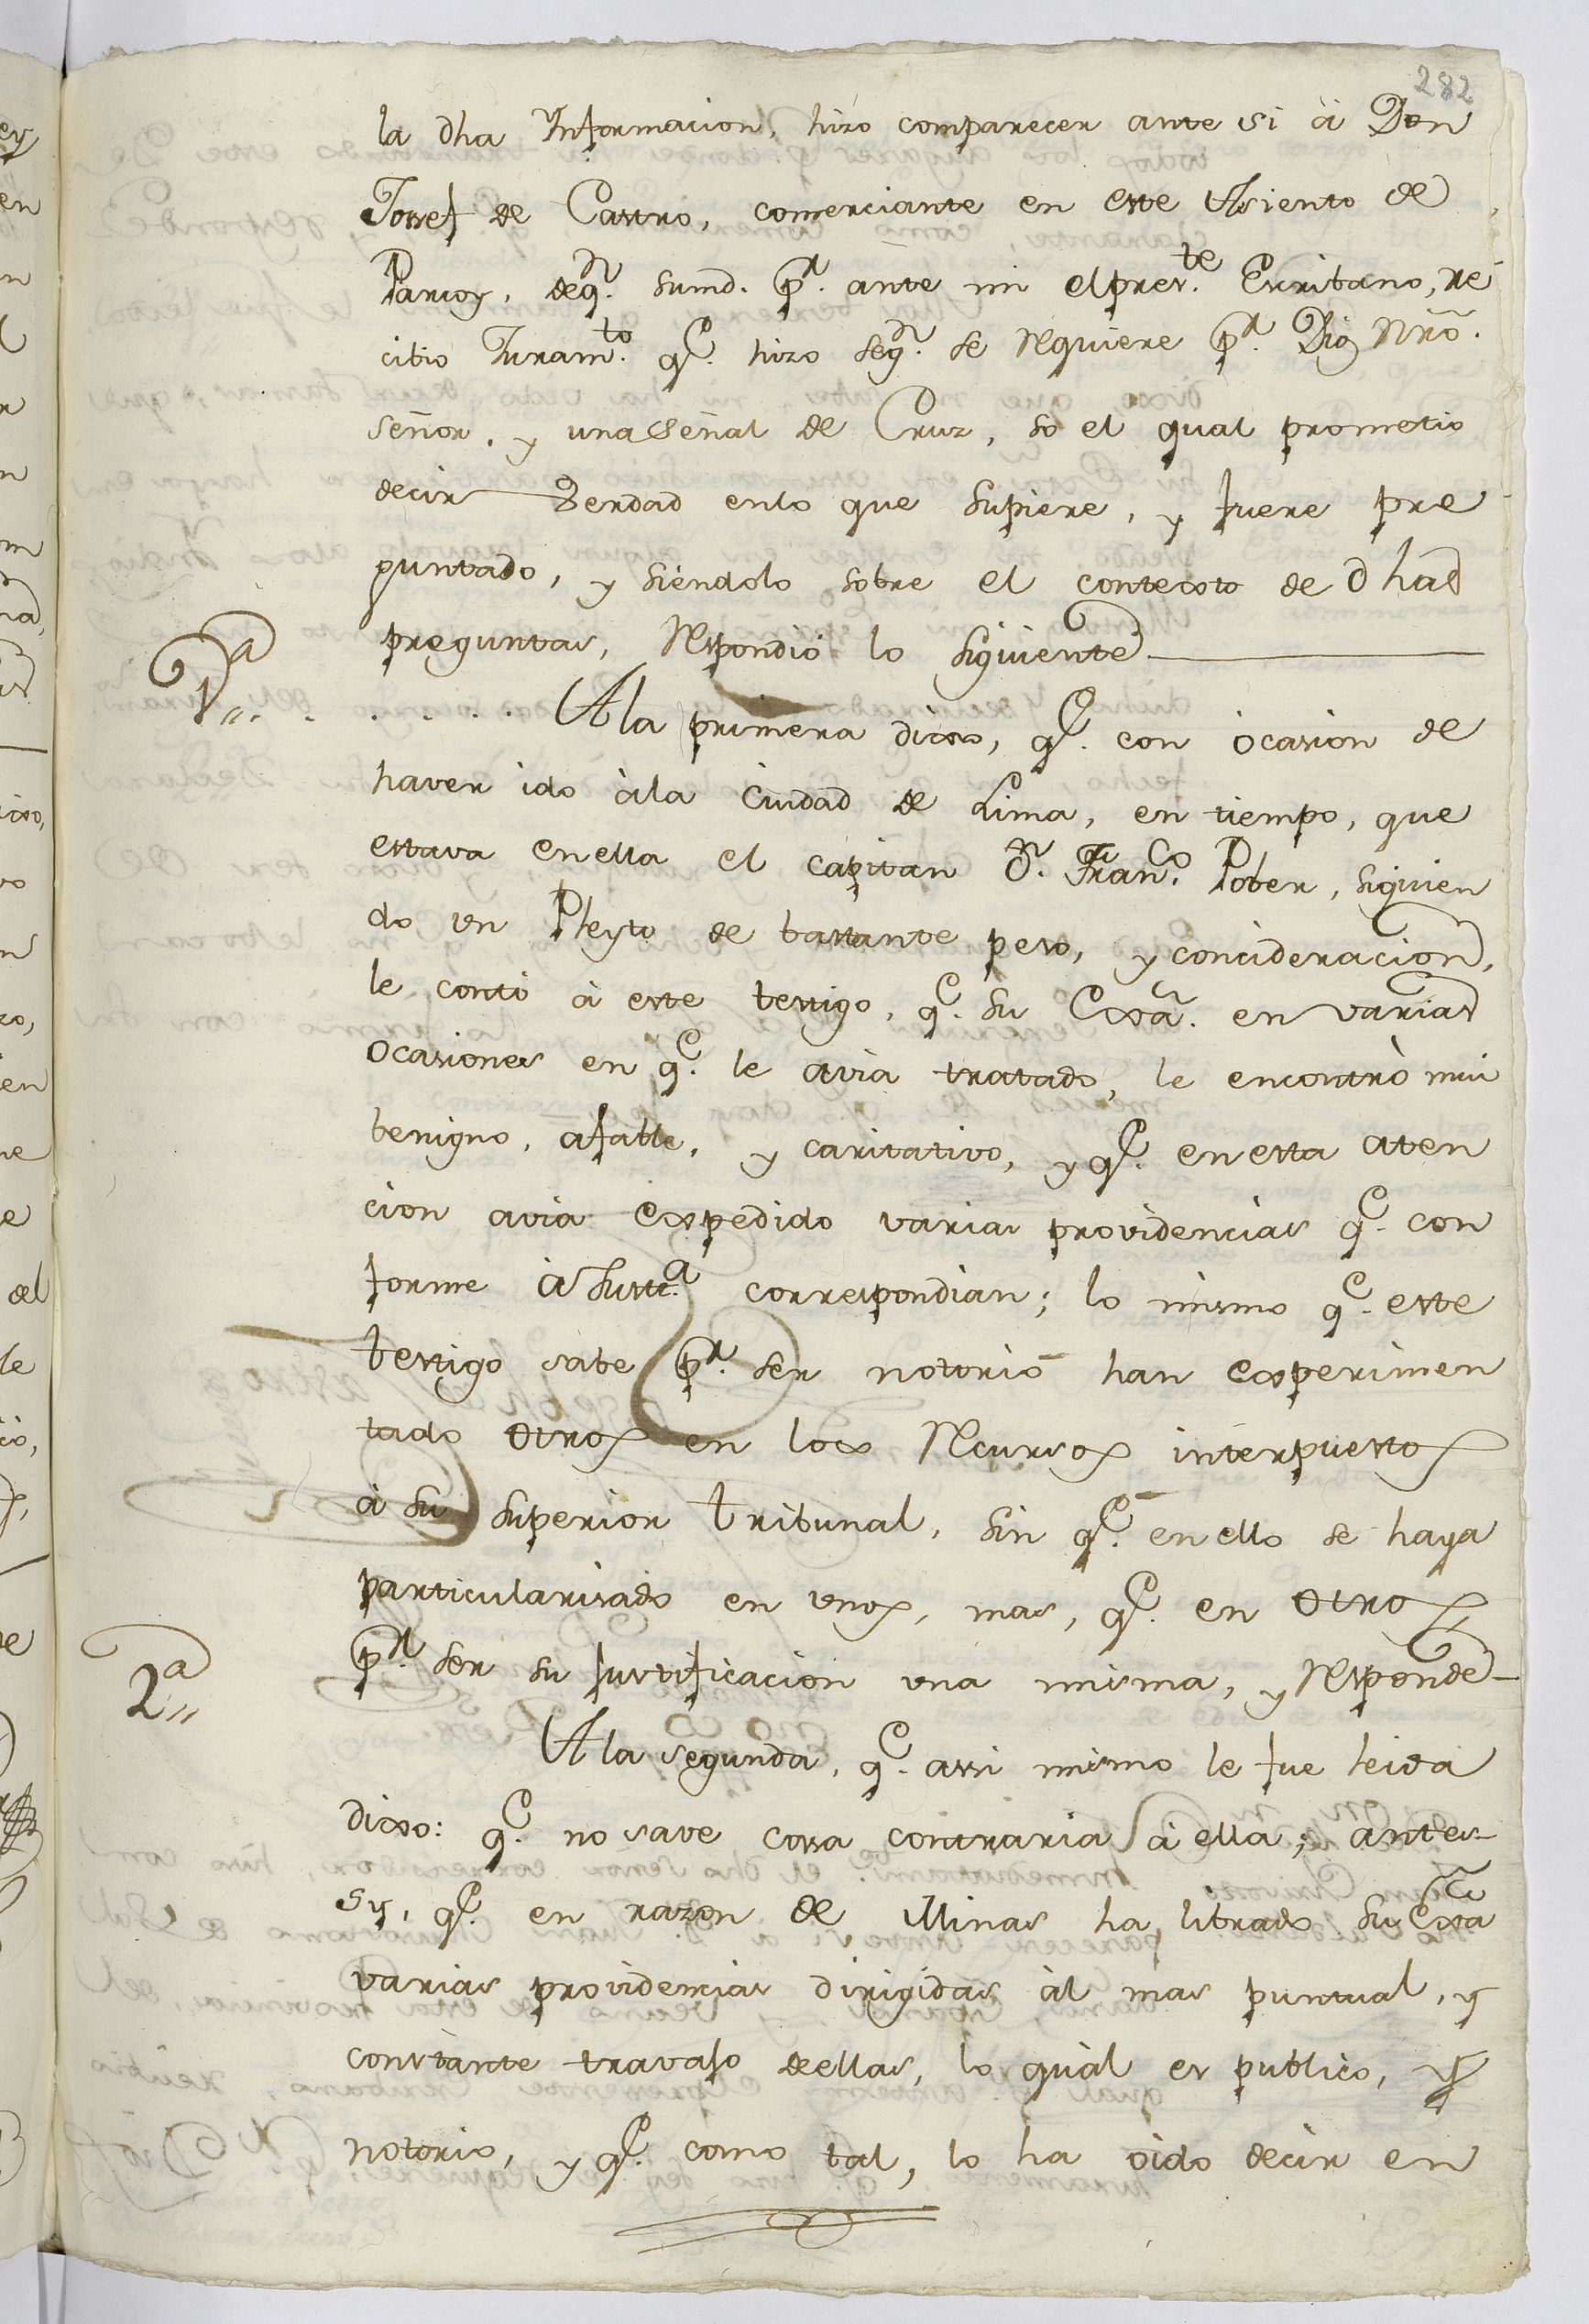 282
la dha Informacion, hizo comparecer ante si à Don
Jossef de Castro, comerciante en este Asiento de
Parcoy, deqn. sumd. pr. ante mi elpreste. Escribano, re
cibio Juramto. qe. hizo segn. se requiere pr. Dios Nrō.
señor, y una señal de Cruz, so el qual prometio
decir Verdad enlo que supiere, y fuere pre
guntado, y siendolo sobre el contexto de dhas
preguntas, respondiò lo siguiente
1a,, . . . . . A la primera dixo, qe. con ocasion de
haver ido àla Ciudad de Lima, en tiempo, que
estava enella el capitan Dn. Franco. Pober, siguien
do un Pleyto de bastante peso, y concideracion,
le contò à este testigo, qe. su Exa. en varias
ocasiones en qe. le avia tratado, le encontrò mui
benigno, afable, y caritativo, y qe. enesta aten
cion avia expedido varias providencias qe. con
forme à Justa. correspondian; lo mismo qe. este
testigo sabe pr. ser notorio han experimen
tado otros en los recursos interpuestos
à su superior tribunal, sin qe. en ello se haya
particularisado en unos, mas, qe. en otros
pr. ser su justificacion una misma, y responde
2a,,
A la segunda, qe. assi mismo le fue leida
dixo: qe. no save cossa contraria à ella; antes
sy, qe. en razon de Minas ha librado su Exa
varias providencias dirigidas àl mas puntual, y
constante travajo dellas, lo quàl es publico, y
notorio, y qe. como tal, lo ha oido decir en